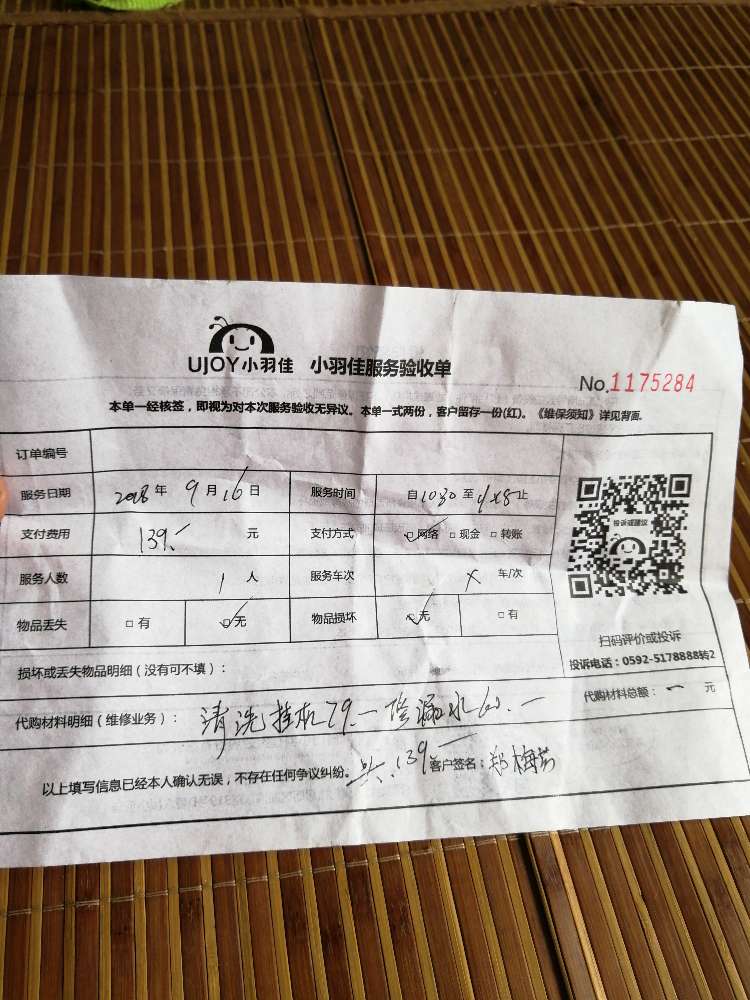 UJOY小羽佳 小羽佳服务验收单
No.1175284
本单一经核签，即视为对本次服务验收无异议。本单一式两份，客户留存一份(红)。《维保须知》详见背面.
订单编号
服务日期 2018年 9月16日 服务时间 自1030至 止
支付费用 139.- 元 支付方式 ☑网络 □现金 □转账
服务人数 1 人 服务车次 × 车/次
物品丢失 □有 ☑无 物品损坏 ☑无 □有
投诉或建议
扫码评价或投诉
投诉电话：0592-5178888转2
损坏或丢失物品明细（没有可不填）：
代购材料明细（维修业务）： 清洗挂机79.一 漏水60.一
代购材料总额： 一 元
以上填写信息已经本人确认无误，不存在任何争议纠纷。 共:139 客户签名：郑梅芳